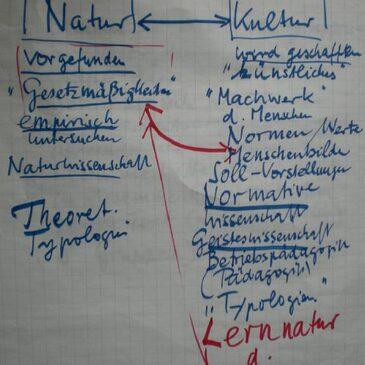 Natur
vorgefunden
"Gesetzmäßigkeiten"
empirisch
untersuchen
Naturwissenschaft
Theoret.
Typologien
Kultur
wird geschaffen
"künstliches"
"Machwerk"
d. Menschen
Normen/Werte
Menschenbilder
Soll-Vorstellungen
Normative
Wissenschaft
Geisteswissenschaft
Betriebspädagogik
(Pädagogik)
"Typologien"
Lernnatur
d.